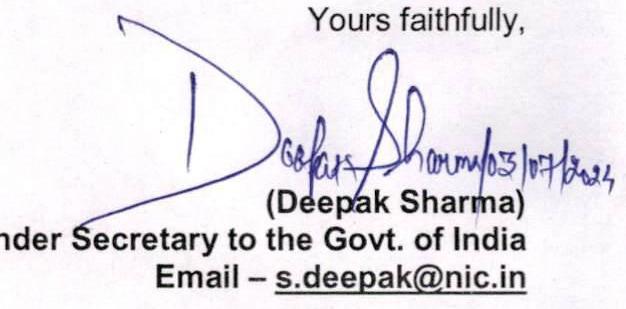 Yours faithfully,
Deepak Sharma/03/07/2024
(Deepak Sharma)
nder Secretary to the Govt. of India
Email – s.deepak@nic.in